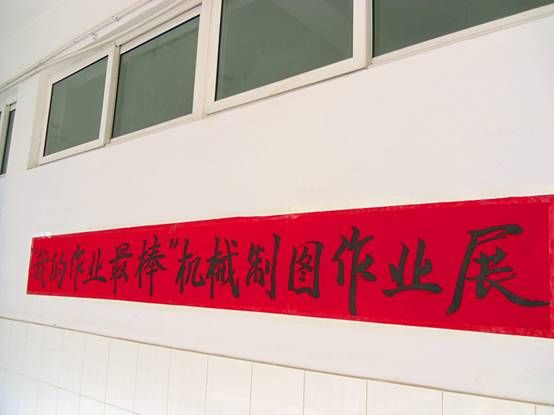 "我的作业最棒"机械制图作业展